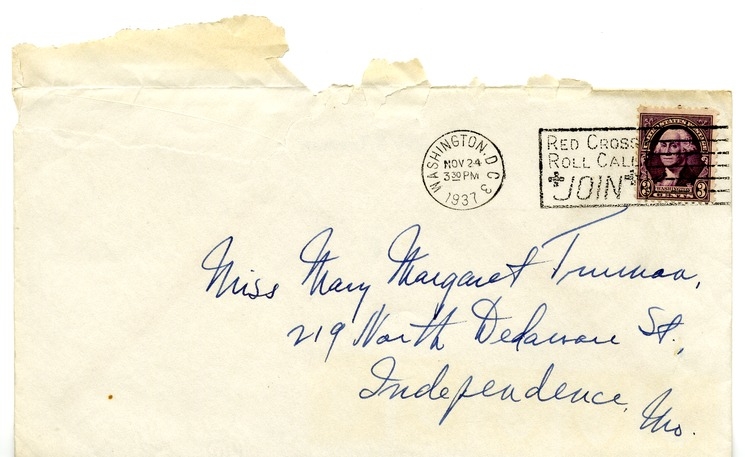 WASHINGTON, D.C.
NOV 24
3 30 PM
1937
RED CROSS
ROLL CALL
JOIN
UNITED STATES POSTAGE
3 WASHINGTON 3
CENTS
Miss Mary Margaret Truman,
219 North Delaware St.,
Independence, Mo.